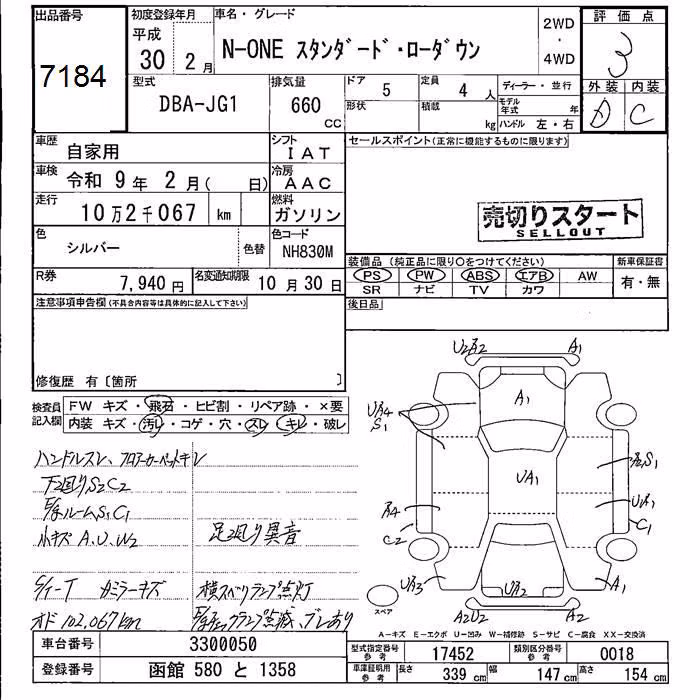 出品番号
7184
初度登録年月
平成
30 2 月
車名・グレード
N-ONE スタンダード・ローダウン
2WD
・
4WD
評価点
3
外装 内装
D C
型式
DBA-JG1
排気量
660
cc
ドア
5
定員
4 人
形状
積載
kg
ディーラー・並行
モデル年式 年
ハンドル 左・右
車歴
自家用
シフト
IAT
車検
令和 9 年 2 月( 日)
冷房
AAC
走行
10万2千067 km
燃料
ガソリン
色
シルバー
色替
色コード
NH830M
R券
7,940 円
名変通知期限
10 月 30 日
セールスポイント(正常に機能するものに限ります)
売切りスタート
SELLOUT
装備品(純正品に限り〇をつけてください)
PS PW ABS エアB AW
SR ナビ TV カワ
新車保証書
有・無
後日品
注意事項申告欄(不具合内容等は具体的に記入して下さい)
修復歴 有〔箇所 〕
検査員記入欄
FW キズ・飛石・ヒビ割・リペア跡・×要
内装 キズ・汚レ・コゲ・穴・スレ・キレ・破レ
ハンドルスレ、フロアーカーペットキレ
下回りS2C2
E/gルームS1C1
小キズA.U.W2
足回り異音
S/I-T カミラーキズ
横スベリランプ点灯
オド102,067km
E/gチェックランプ点滅、ブレあり
U2A2
A1
A1
UA4
S1
A2S1
UA1
A4
UA1
C2
C1
UA3
UA2
A1
A2U2
A2
スペア
A-キズ E-エクボ U-凹み W-補修跡 S-サビ C-腐食 XX-交換済
車台番号
3300050
登録番号
函館 580 と 1358
型式指定番号
参考
17452
類別区分番号
参考
0018
車庫証明用
参考
長さ
339 cm
幅
147 cm
高さ
154 cm